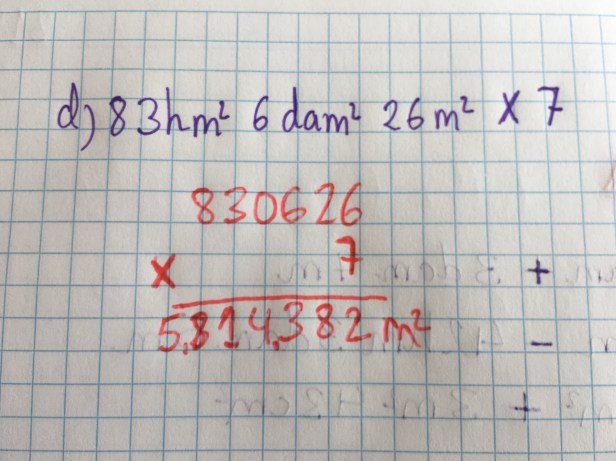 d) 83hm² 6 dam² 26 m² x 7
830626
x 7
5.814.382 m²
+
-
+